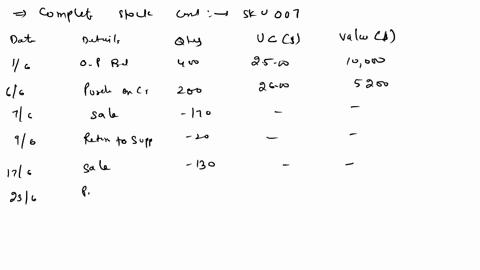 ⇒ Complet Stock Card :→ SKU 007
Date Details Qty UC ($) Value ($)
1/6 O.P Bal 400 25.00 10,000
6/6 Purch on Cr 200 26.00 5200
7/6 Sale -170 - -
9/6 Return to Supp -20 - -
17/6 Sale -130 - -
23/6 P.